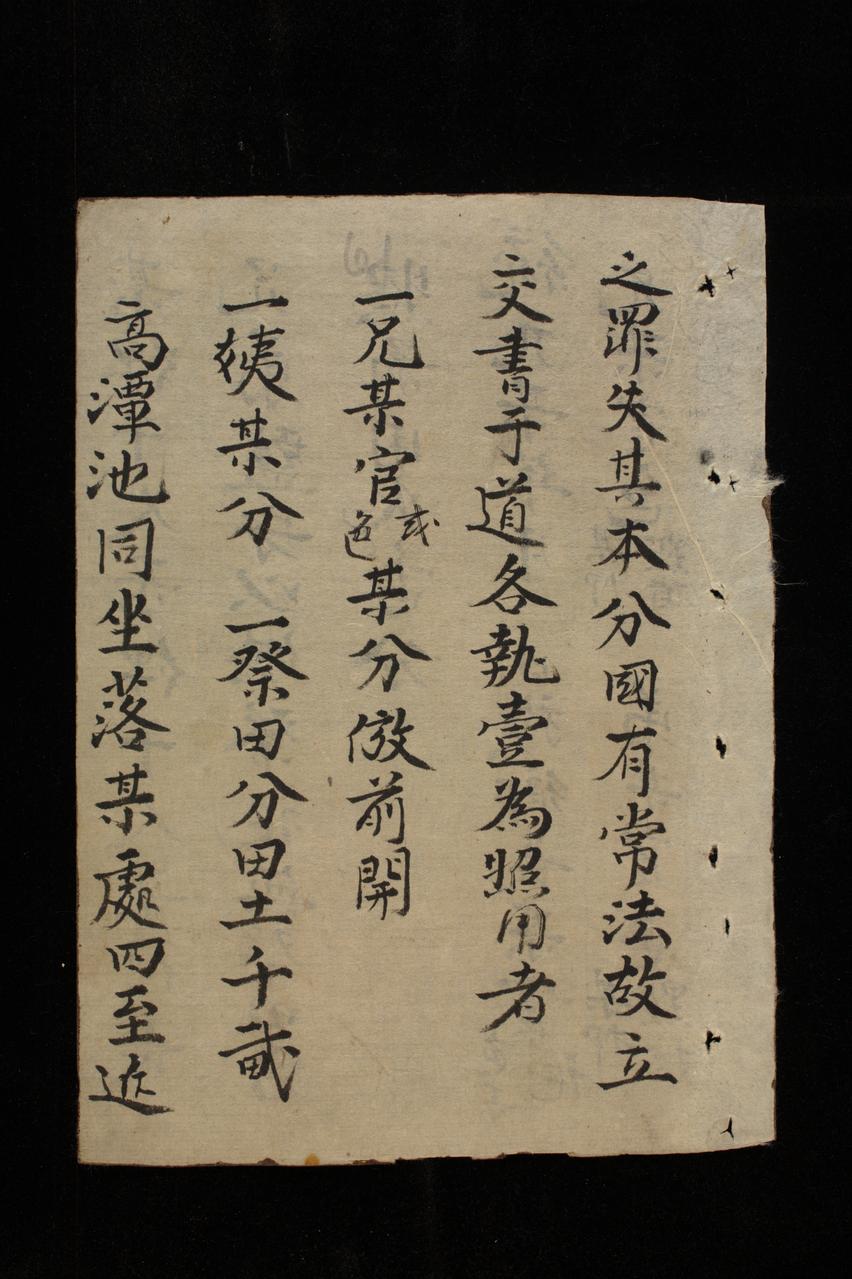 之罪失其本分國有常法故立
交書于道各執壹為照用者
一兄某官或色某分倣前開
一姨某分 一祭田分田土千畝
高潭池同坐落某處四至近